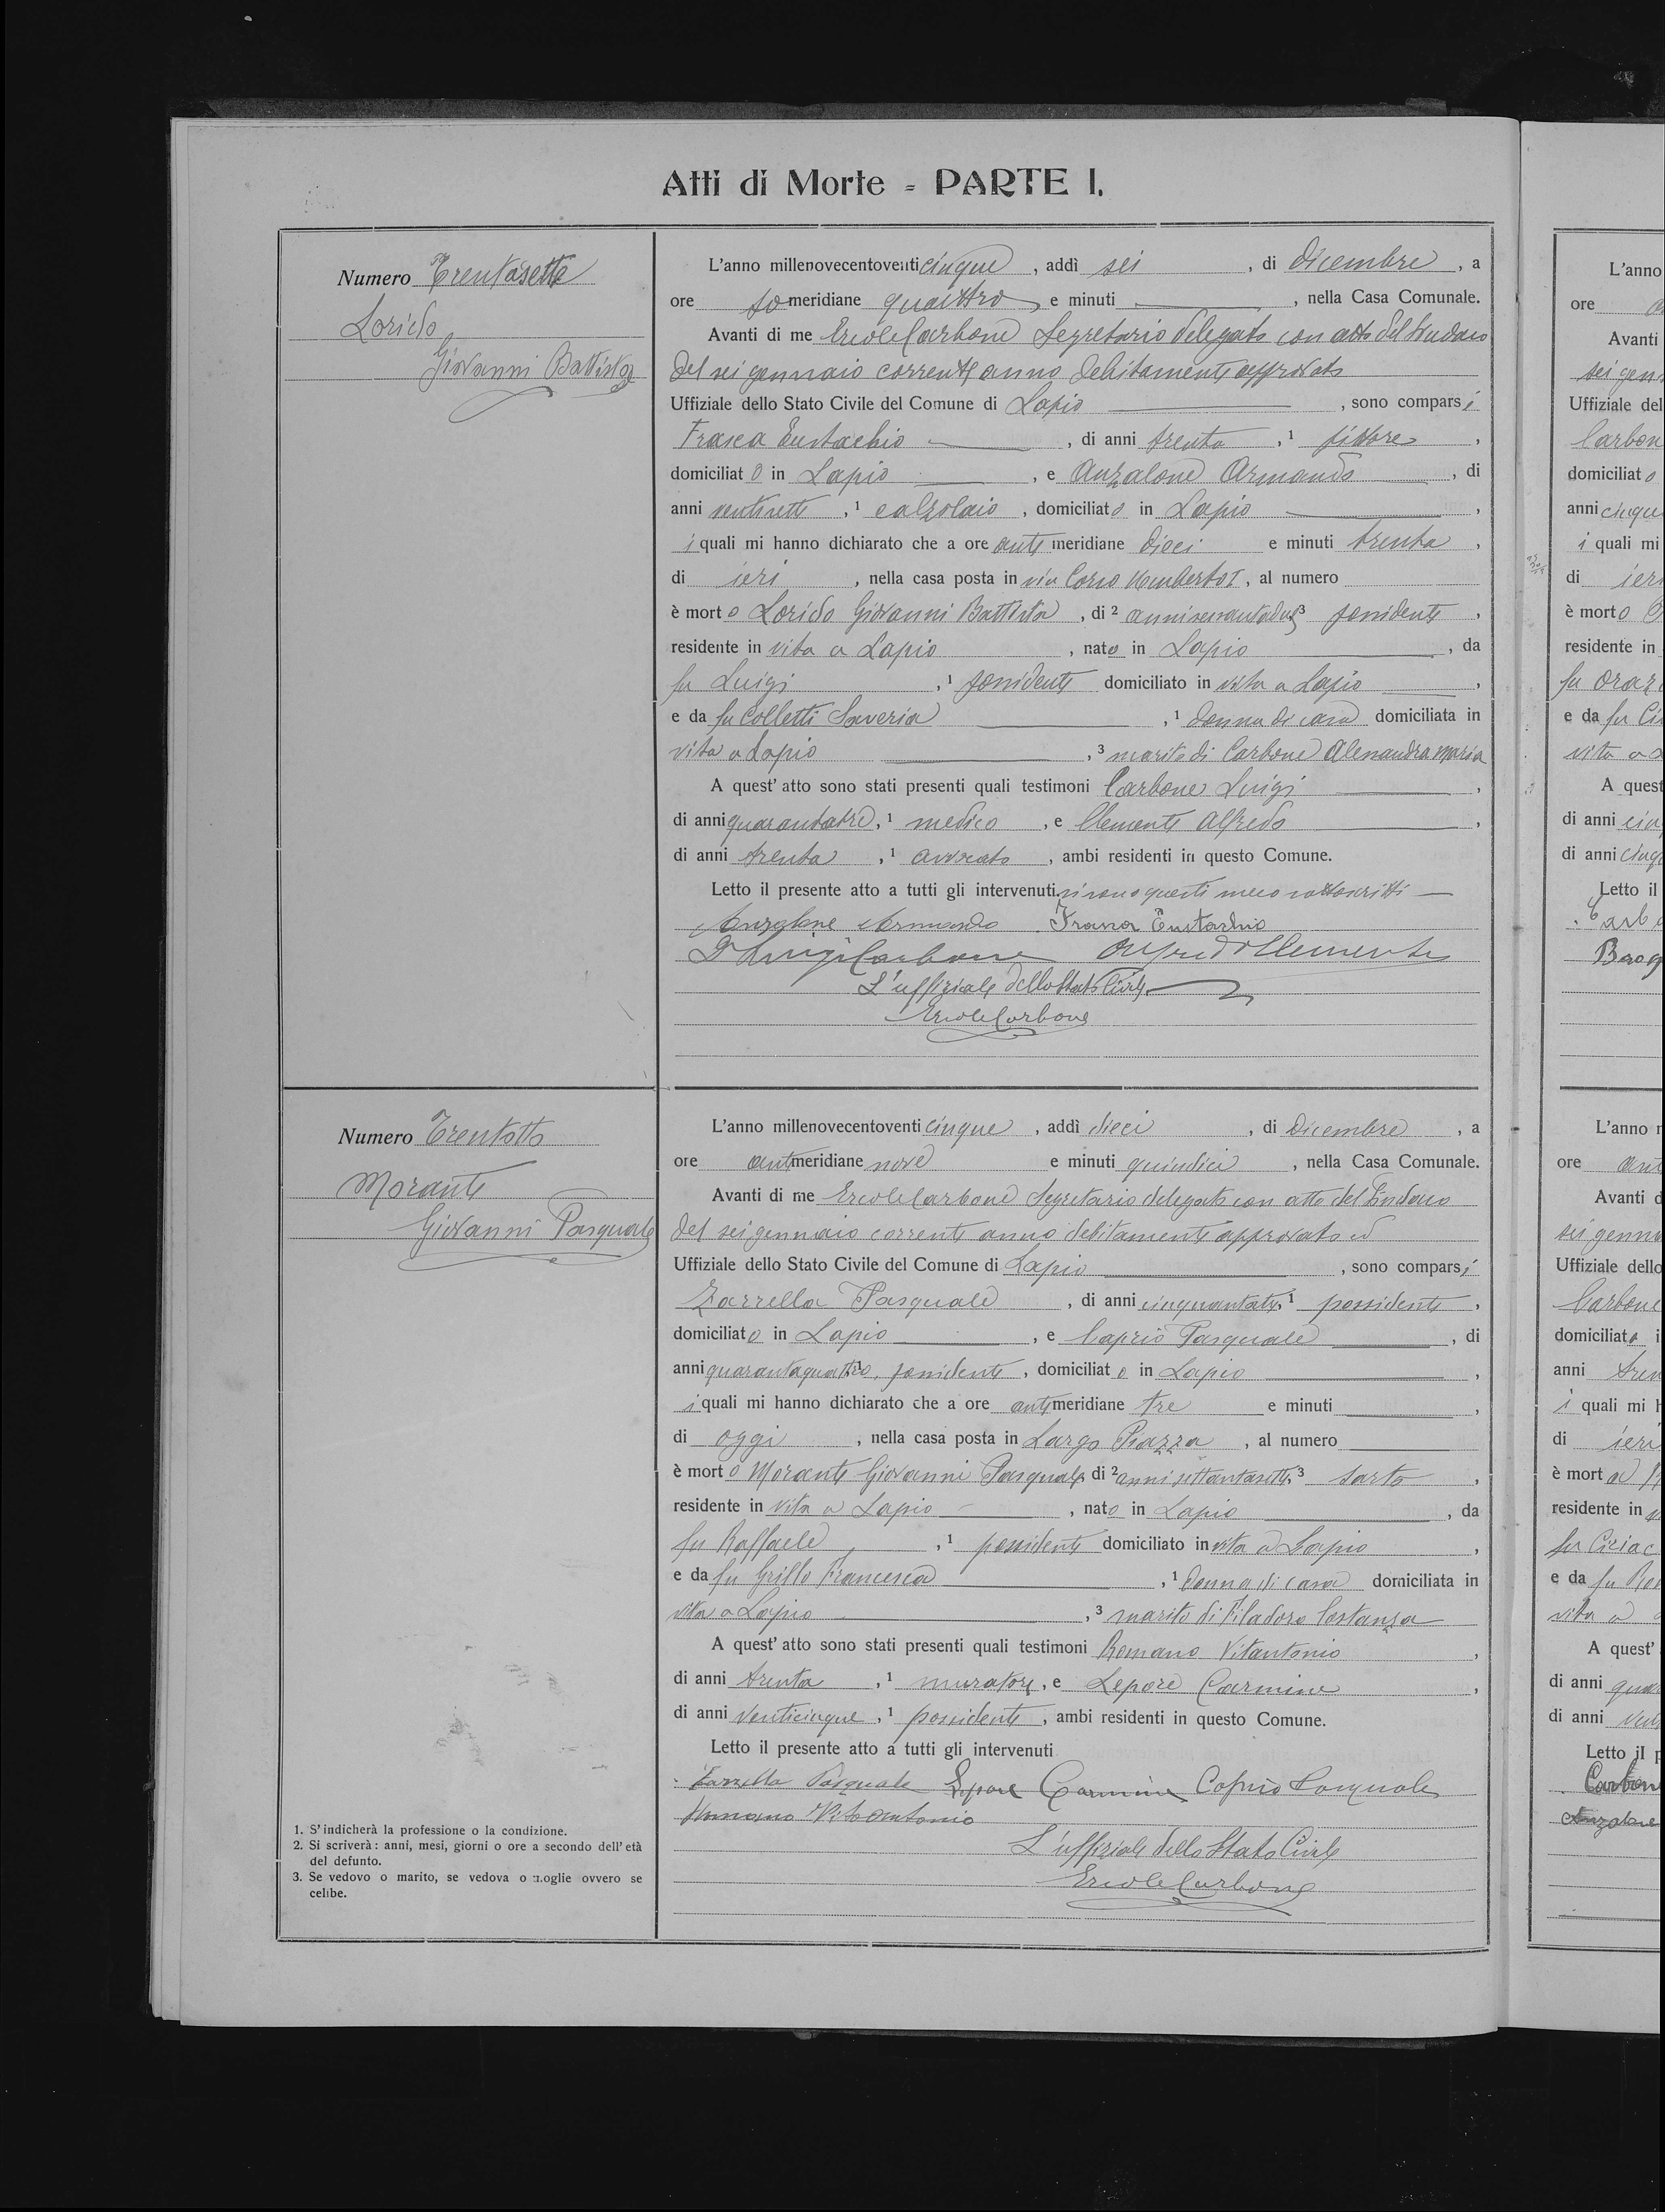 Atti di Morte - PARTE I.
Numero Trentasette
Lorido
Giovanni Battista
L'anno millenovecentoventicinque, addì sei, di Dicembre, a
ore pomeridiane quattro, e minuti, nella Casa Comunale.
Avanti di me Ercole Carbone Segretario delegato con atto del Sindaco
del sei gennaio corrente anno debitamente approvato
Uffiziale dello Stato Civile del Comune di Lapio, sono comparsi
Frasca Eustachio, di anni trenta,¹ pittore,
domiciliato in Lapio, e Anzalone Armando, di
anni ventisette,¹ calzolaio, domiciliato in Lapio,
i quali mi hanno dichiarato che a ore antimeridiane dieci e minuti trenta,
di ieri, nella casa posta in via Corso Umberto I, al numero
è morto Lorido Giovanni Battista, di² anni ³ possidente,
residente in vita a Lapio, nato in Lapio, da
fu Luigi,¹ possidente domiciliato in vita a Lapio,
e da fu Colletti Saveria,¹ donna di casa domiciliata in
vita a Lapio,³ marito di Carbone Alessandra Maria
A quest'atto sono stati presenti quali testimoni Carbone Luigi,
di anni quarantatre,¹ medico, e Clemente Alfredo,
di anni trenta,¹ avvocato, ambi residenti in questo Comune.
Letto il presente atto a tutti gli intervenuti si sono questi meco sottoscritti
Anzalone Armando Frasca Eustachio
Dr Luigi Carbone Alfredo Clemente
L'uffiziale dello Stato Civile
Ercole Carbone
Numero Trentotto
Morante
Giovanni Pasquale
L'anno millenovecentoventicinque, addì dieci, di Dicembre, a
ore antimeridiane nove e minuti quindici, nella Casa Comunale.
Avanti di me Ercole Carbone Segretario delegato con atto del Sindaco
del sei gennaio corrente anno debitamente approvato ed
Uffiziale dello Stato Civile del Comune di Lapio, sono comparsi
Zarrella Pasquale, di anni ¹ possidente,
domiciliato in Lapio, e Caprio Pasquale, di
anni quarantaquattro, possidente, domiciliato in Lapio,
i quali mi hanno dichiarato che a ore antimeridiane tre e minuti,
di oggi, nella casa posta in Largo Piazza, al numero
è morto Morante Giovanni Pasquale di² anni settantasette,³ sarto,
residente in vita a Lapio, nato in Lapio, da
fu Raffaele,¹ possidente domiciliato in vita a Lapio,
e da fu Grillo Francesca,¹ donna di casa domiciliata in
vita a Lapio,³ marito di Filadoro Costanza
A quest'atto sono stati presenti quali testimoni Romano Vitantonio,
di anni trenta,¹ muratore, e Lepore Carmine,
di anni venticinque,¹ possidente, ambi residenti in questo Comune.
Letto il presente atto a tutti gli intervenuti
Zarrella Pasquale Lepore Carmine Caprio Pasquale
Romano Vitoantonio
L'uffiziale dello Stato Civile
Ercole Carbone
1. S'indicherà la professione o la condizione.
2. Si scriverà: anni, mesi, giorni o ore a secondo dell'età
del defunto.
3. Se vedovo o marito, se vedova o moglie ovvero se
celibe.
L'anno
ore
Avanti
sei gen
Uffiziale del
Carbon
domiciliato
anni cinque
i quali mi
di ieri
è morto
residente in
fu Oraz
e da fu
vita a
A quest
di anni
di anni
Letto il
Carb
L'anno
ore ant
Avanti
sei genna
Uffiziale dello
Carbone
domiciliato i
anni tren
i quali mi
di ieri
è morta
residente in
fu Ciriac
e da fu
vita a
A quest'
di anni
di anni
Letto il p
Carbon
Anzalone